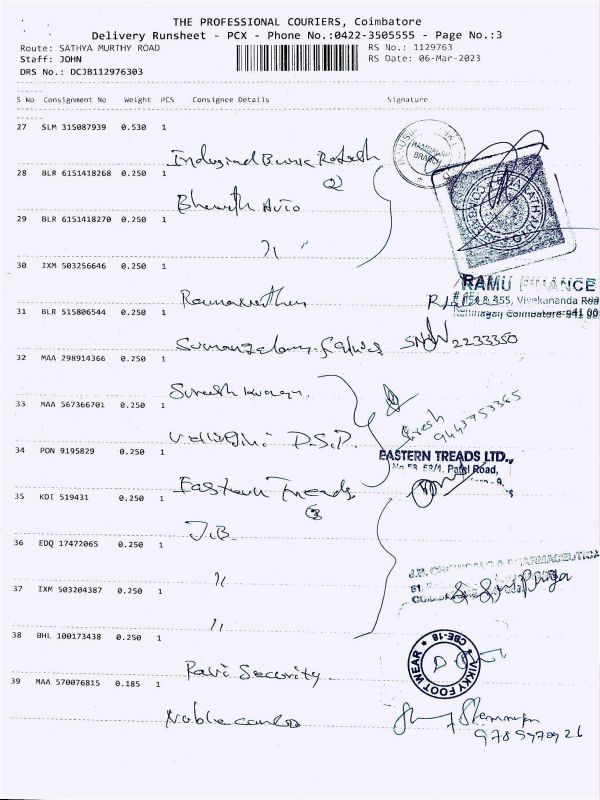 THE PROFESSIONAL COURIERS, Coimbatore
Delivery Runsheet - PCX - Phone No.:0422-3505555 - Page No.:3
Route: SATHYA MURTHY ROAD RS No.: 1129763
Staff: JOHN RS Date: 06-Mar-2023
DRS No.: DCJB112976303
S No Consignment No Weight PCS Consignee Details Signature
27 SLM 315087939 0.530 1
BRANCH
28 BLR 6151418268 0.250 1
2
Bharath Auto
29 BLR 6151418270 0.250 1
30 IXM 503256646 0.250 1
RAMU FINANCE
& 355, Vivekananda Roa
Ramnagar, Coimbatore-641 00
31 BLR 515806544 0.250 1
2233350
32 MAA 298914366 0.250 1
Suresh Kumar
33 MAA 567366701 0.250 1
9443753365
D.S.P.
34 PON 9195829 0.250 1
EASTERN TREADS LTD.,
Patel Road,
Eastern Treads
3
35 KDI 519431 0.250 1
J.B.
36 EDQ 17472065 0.250 1
"
37 IXM 503204387 0.250 1
"
38 BHL 100173438 0.250 1
VIKKY FOOT WEAR
CBE-18
Ravi Security
39 MAA 570076815 0.185 1